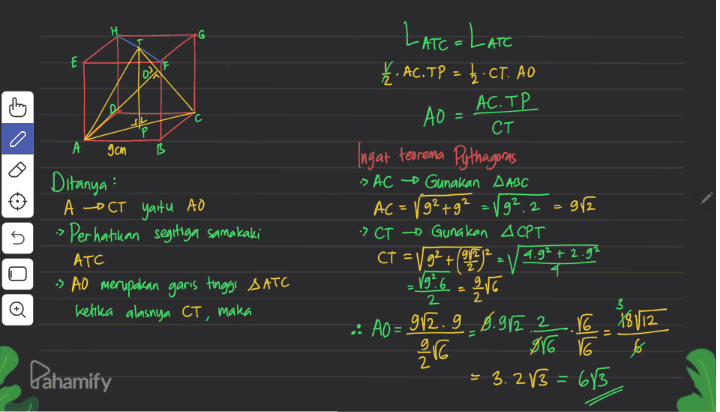 H
T
G
E
F
O
D
C
P
A
9cm
B
Ditanya :
A → CT yaitu AO
-> Perhatikan segitiga samakaki
ATC
-> AO merupakan garis tinggi ΔATC
ketika alasnya CT, maka
Pahamify
L ATC = L ATC
½ . AC.TP = ½ . CT. AO
AO = AC.TP / CT
Ingat teorema Pythagoras
-> AC → Gunakan ΔABC
AC = √9²+9² = √9².2 = 9√2
-> CT → Gunakan ΔCPT
CT = √9² + (9√2/2)² = √4.9² + 2.9² / 4
= √9².6 / 2 = 9/2 √6
∴ AO = 9√2 . 9 / 9/2 √6 = 9.9√2 . 2 / 9√6 . √6/√6 = 3 18√12 / 6
= 3. 2√3 = 6√3